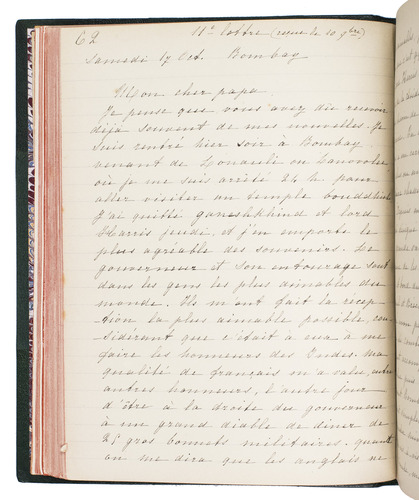 62   11e lettre (reçue le 10 9bre)
Samedi 17 Oct. Bombay
Mon cher papa.
Je pense que vous avez dû recevoir
déjà souvent de mes nouvelles. Je
suis rentré hier soir à Bombay
venant de Lonauli ou
où je me suis arrêté 24 h. pour
aller visiter un temple bouddhiste
J'ai quitté ganeshkhind et lord
Harris jeudi, et j'en emporte le
plus agréable des souvenirs. Le
gouverneur et son entourage sont
dans les gens les plus aimables du
monde. Ils m'ont fait la récep-
tion la plus aimable possible, con-
sidérant que c'était à eux à me
faire les honneurs des Indes. Ma
qualité de français m'a valu, entre
autres honneurs, l'autre jour
d'être à la droite du gouverneur
à un grand diable de dîner de
25 gros bonnets militaires. quand
on me dira que les anglais ne